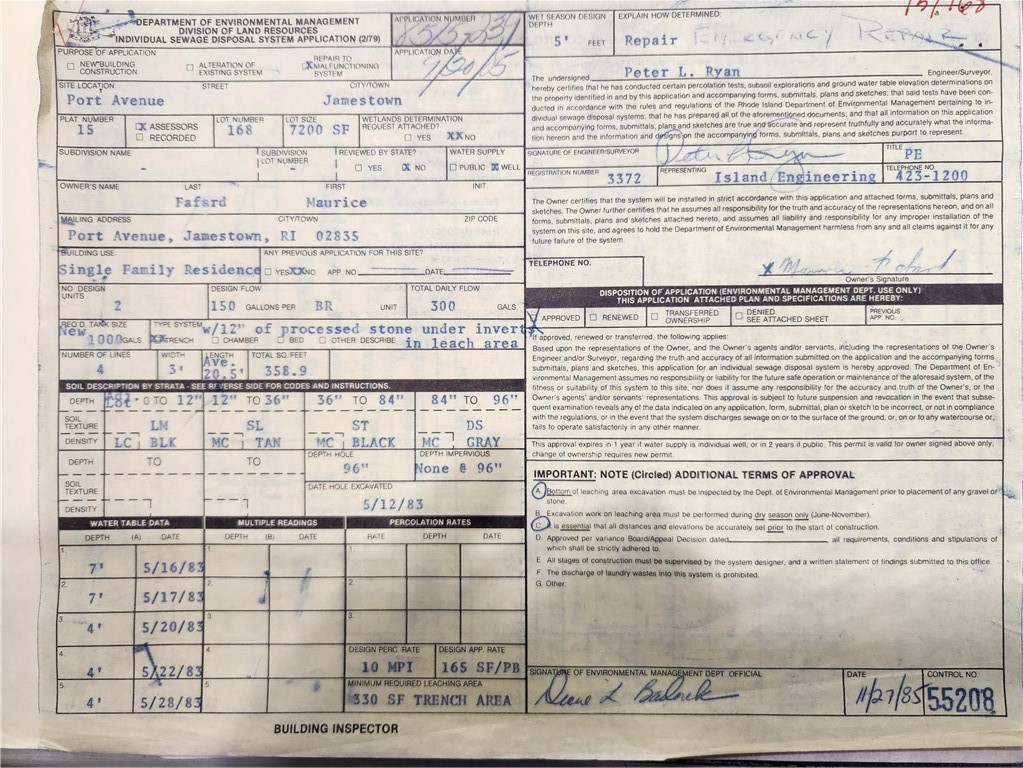 DEPARTMENT OF ENVIRONMENTAL MANAGEMENT
DIVISION OF LAND RESOURCES
INDIVIDUAL SEWAGE DISPOSAL SYSTEM APPLICATION (2/79)
APPLICATION NUMBER
PURPOSE OF APPLICATION
NEW BUILDING CONSTRUCTION
ALTERATION OF EXISTING SYSTEM
X REPAIR TO MALFUNCTIONING SYSTEM
APPLICATION DATE
SITE LOCATION STREET CITY/TOWN
Port Avenue Jamestown
PLAT NUMBER 15
X ASSESSORS
RECORDED
LOT NUMBER 168
LOT SIZE 7200 SF
WETLANDS DETERMINATION REQUEST ATTACHED?
YES XX NO
SUBDIVISION NAME -
SUBDIVISION LOT NUMBER -
REVIEWED BY STATE? YES X NO
WATER SUPPLY PUBLIC X WELL
OWNER'S NAME LAST FIRST INIT.
Fafard Maurice
MAILING ADDRESS CITY/TOWN ZIP CODE
Port Avenue, Jamestown, RI 02835
BUILDING USE
Single Family Residence
ANY PREVIOUS APPLICATION FOR THIS SITE?
YES XX NO APP NO. DATE
NO DESIGN UNITS 2
DESIGN FLOW 150 GALLONS PER BR UNIT
TOTAL DAILY FLOW 300 GALS.
REQ'D. TANK SIZE New 1000 GALS
TYPE SYSTEM w/12" of processed stone under inverts
XX TRENCH CHAMBER BED OTHER DESCRIBE in leach area
NUMBER OF LINES 4
WIDTH 3'
LENGTH Ave. 20.5'
TOTAL SQ. FEET 358.9
SOIL DESCRIPTION BY STRATA - SEE REVERSE SIDE FOR CODES AND INSTRUCTIONS.
DEPTH 0 TO 12" 12" TO 36" 36" TO 84" 84" TO 96"
SOIL TEXTURE LM SL ST DS
DENSITY LC BLK MC TAN MC BLACK MC GRAY
DEPTH TO TO
DEPTH HOLE 96"
DEPTH IMPERVIOUS None @ 96"
SOIL TEXTURE
DENSITY
DATE HOLE EXCAVATED
5/12/83
WATER TABLE DATA MULTIPLE READINGS PERCOLATION RATES
DEPTH (A) DATE DEPTH (B) DATE RATE DEPTH DATE
1. 7' 5/16/83 1. 1.
2. 7' 5/17/83 2. 2.
3. 4' 5/20/83 3. 3.
4. 4' 5/22/83 4.
DESIGN PERC. RATE 10 MPI
DESIGN APP. RATE 165 SF/PB
5. 4' 5/28/83 5.
MINIMUM REQUIRED LEACHING AREA
330 SF TRENCH AREA
BUILDING INSPECTOR
WET SEASON DESIGN DEPTH
5' FEET
EXPLAIN HOW DETERMINED:
Repair EMERGENCY REPAIR
The undersigned, Peter L. Ryan Engineer/Surveyor,
hereby certifies that he has conducted certain percolation tests, subsoil explorations and ground water table elevation determinations on
the property identified in and by this application and accompanying forms, submittals, plans and sketches; that said tests have been con-
ducted in accordance with the rules and regulations of the Rhode Island Department of Environmental Management pertaining to in-
dividual sewage disposal systems; that he has prepared all of the aforementioned documents; and that all information on this application
and accompanying forms, submittals, plans and sketches are true and accurate and represent truthfully and accurately what the informa-
tion hereon and the information and designs on the accompanying forms, submittals, plans and sketches purport to represent.
SIGNATURE OF ENGINEER/SURVEYOR
Peter L Ryan
TITLE PE
REGISTRATION NUMBER 3372
REPRESENTING Island Engineering
TELEPHONE NO. 423-1200
The Owner certifies that the system will be installed in strict accordance with this application and attached forms, submittals, plans and
sketches. The Owner further certifies that he assumes all responsibility for the truth and accuracy of the representations hereon, and on all
forms, submittals, plans and sketches attached hereto, and assumes all liability and responsibility for any improper installation of the
system on this site, and agrees to hold the Department of Environmental Management harmless from any and all claims against it for any
future failure of the system.
TELEPHONE NO.
x Maurice Fafard
Owner's Signature
DISPOSITION OF APPLICATION (ENVIRONMENTAL MANAGEMENT DEPT. USE ONLY)
THIS APPLICATION ATTACHED PLAN AND SPECIFICATIONS ARE HEREBY:
APPROVED RENEWED TRANSFERRED OWNERSHIP DENIED. SEE ATTACHED SHEET PREVIOUS APP NO.
If approved, renewed or transferred, the following applies:
Based upon the representations of the Owner, and the Owner's agents and/or servants, including the representations of the Owner's
Engineer and/or Surveyor, regarding the truth and accuracy of all information submitted on the application and the accompanying forms
submittals, plans, sketches, this application for an individual sewage disposal system is hereby approved. The Department of En-
vironmental Management assumes no responsibility or liability for the future safe operation or maintenance of the aforesaid system, of the
fitness or suitability of this system to this site, nor does it assume any responsibility for the accuracy and truth of the Owner's, or its
Owner's agents' and/or servants' representations. This approval is subject to future suspension and revocation in the event that subse-
quent examination reveals any of the data indicated on any application, form, submittal, plan or sketch to be incorrect, or not in compliance
with the regulations, or in the event that the system discharges sewage on or to the surface of the ground, or, on or to any watercourse or,
fails to operate satisfactorily in any other manner.
This approval expires in 1 year if water supply is individual well, or in 2 years if public. This permit is valid for owner signed above only,
change of ownership requires new permit.
IMPORTANT: NOTE (Circled) ADDITIONAL TERMS OF APPROVAL
A. Bottom of leaching area excavation must be inspected by the Dept. of Environmental Management prior to placement of any gravel or
stone.
B. Excavation work on leaching area must be performed during dry season only (June-November).
C. It is essential that all distances and elevations be accurately set prior to the start of construction.
D. Approved per variance Board/Appeal Decision dated all requirements, conditions and stipulations of
which shall be strictly adhered to.
E. All stages of construction must be supervised by the system designer, and a written statement of findings submitted to this office.
F. The discharge of laundry wastes into this system is prohibited.
G. Other:
SIGNATURE OF ENVIRONMENTAL MANAGEMENT DEPT. OFFICIAL
DATE 11/27/85
CONTROL NO. 55208